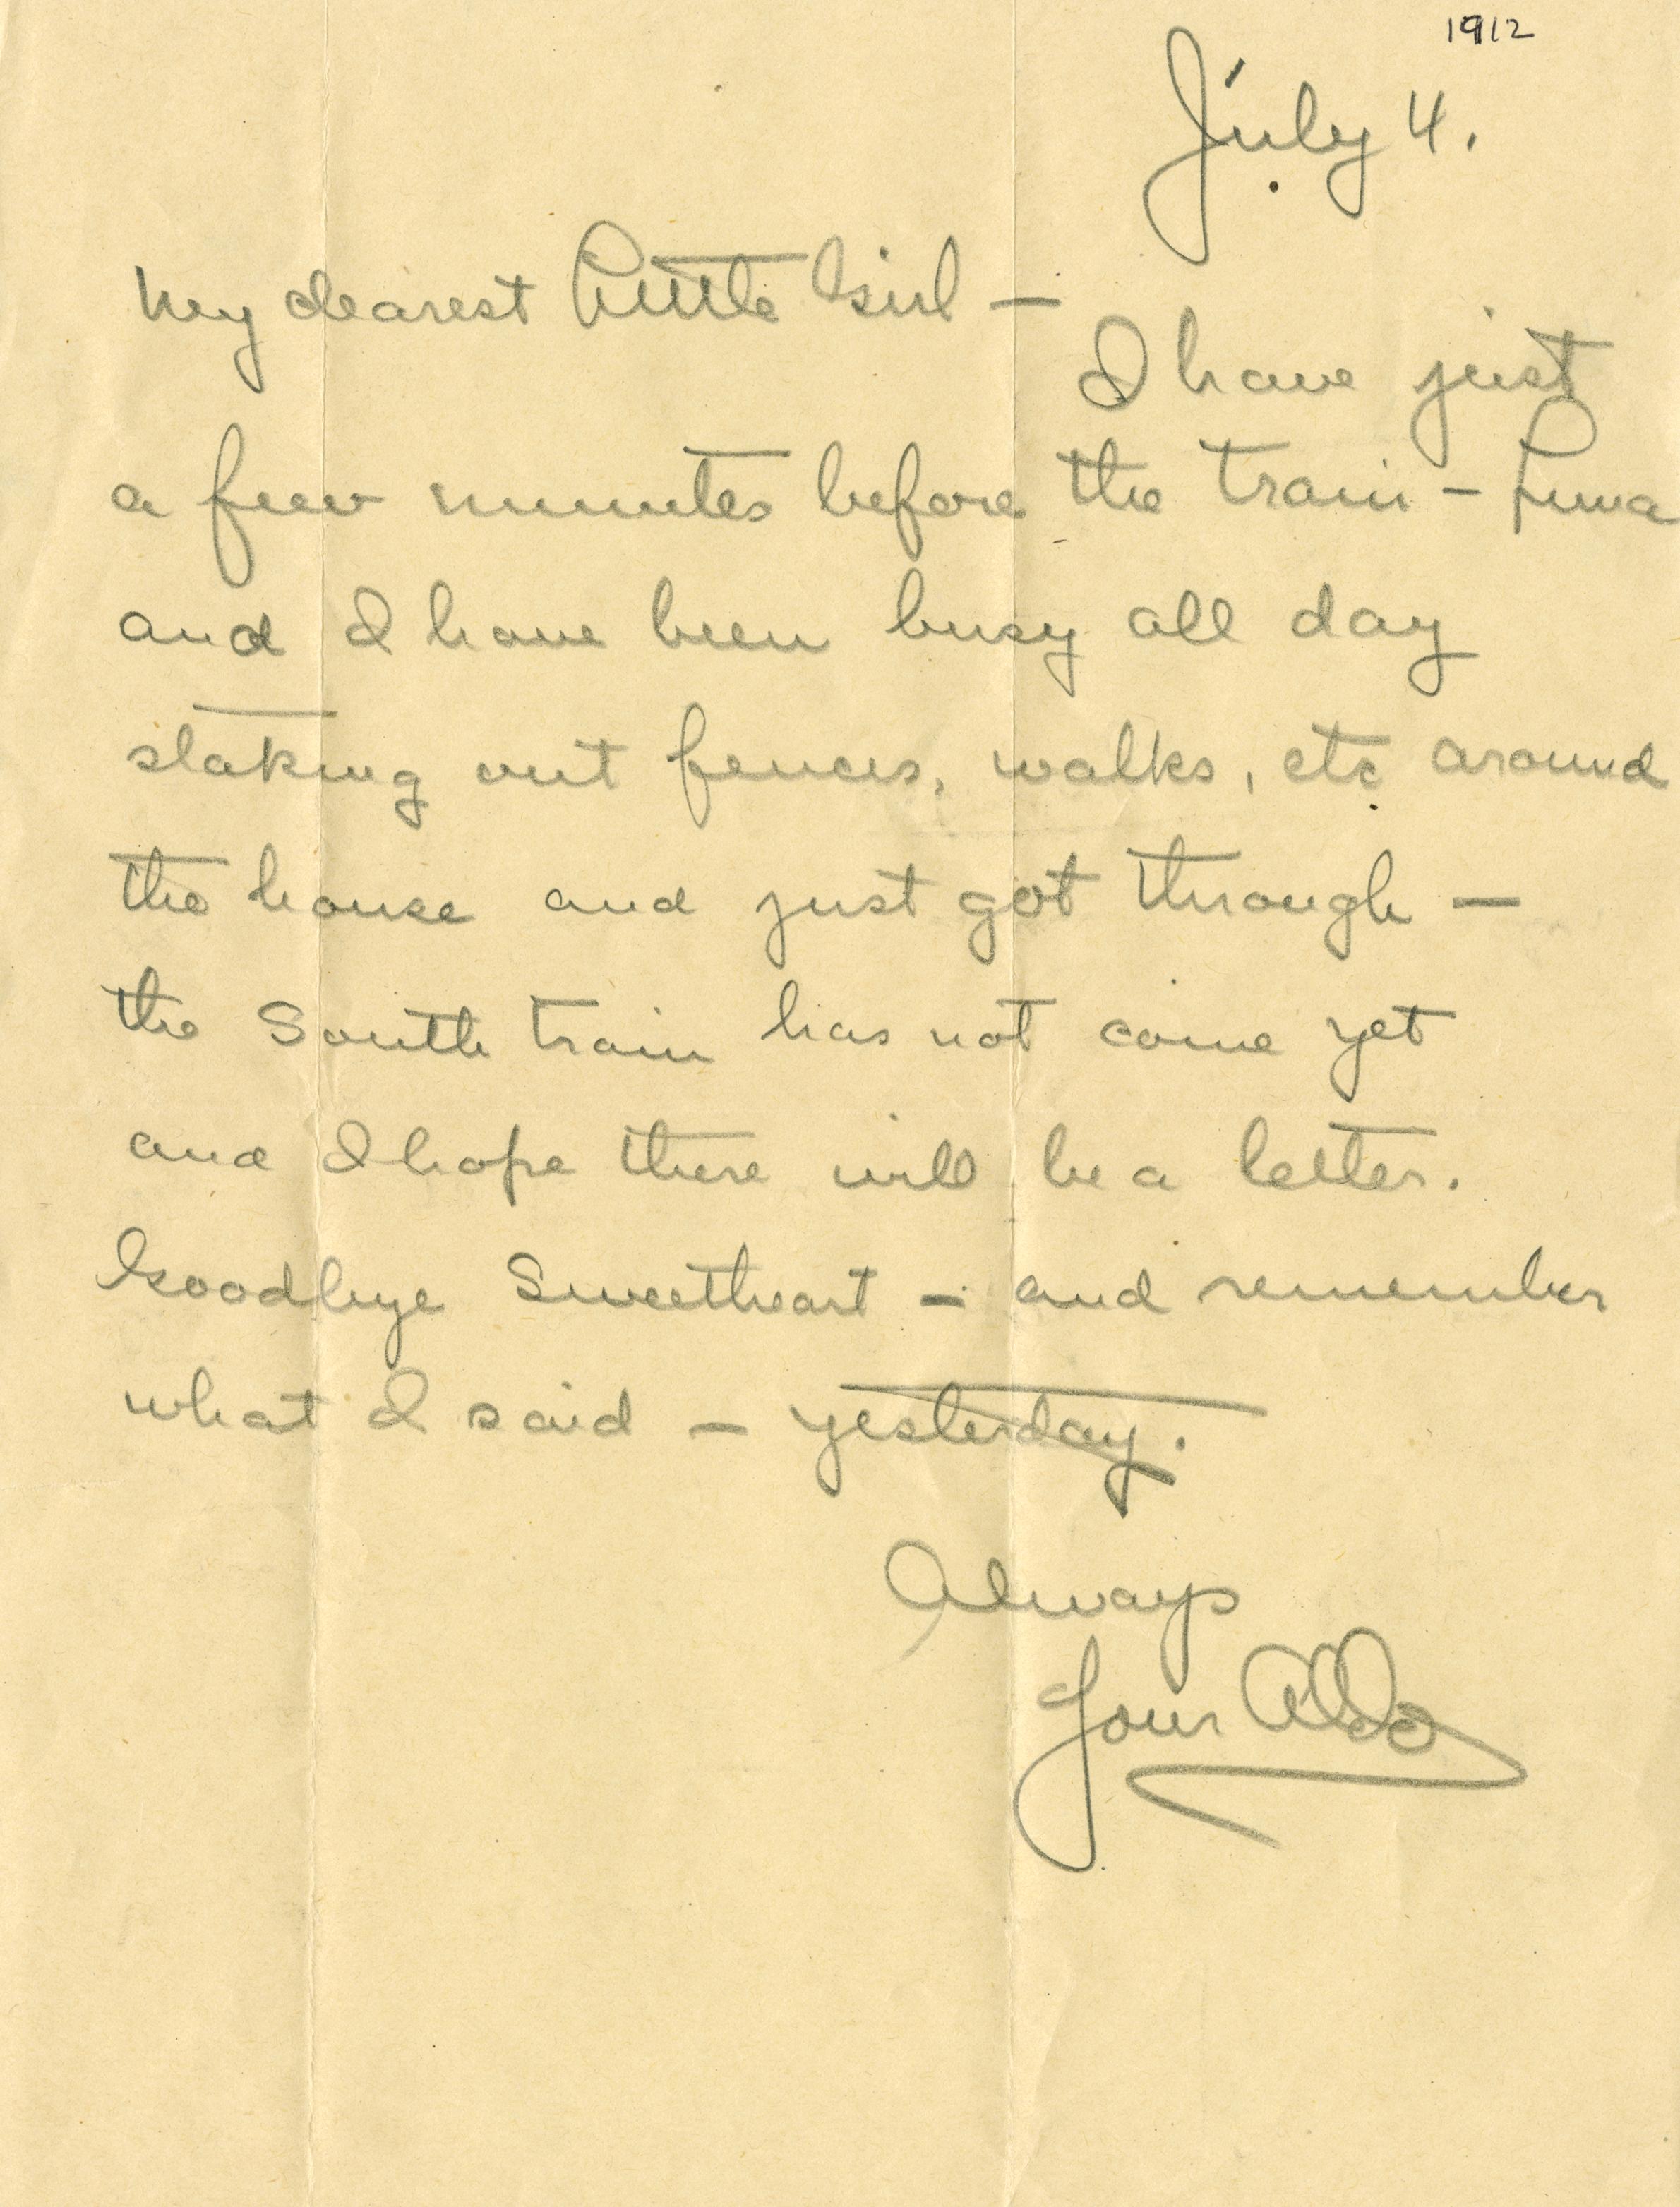 1912
July 4.
My dearest Little Girl —
I have just
a few minutes before the train — Luna
and I have been busy all day
staking out fences, walks, etc around
the house and just got through —
the South train has not come yet
and I hope there will be a letter.
Goodbye Sweetheart — and remember
what I said — yesterday.
Always
Your Aldo